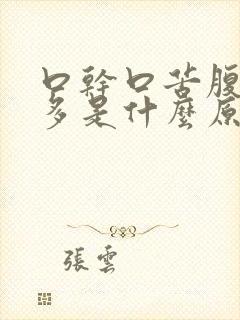 口幹口苦腹
多是什麼原
張雲